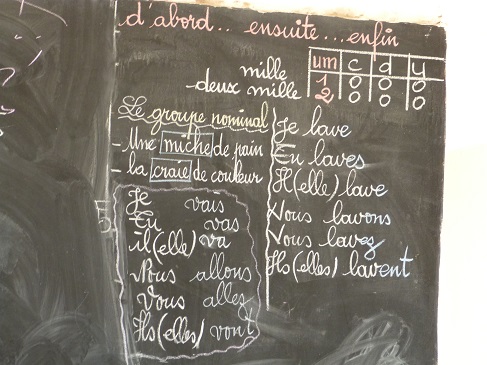 d'abord.. ensuite...enfin
um c d u
mille 1 0 0 0
deux mille 2 0 0 0
Le groupe nominal
- Une miche de pain
- La craie de couleur
Je vais
Tu vas
il(elle) va
Nous allons
Vous allez
Ils(elles) vont
Je lave
Tu laves
Il(elle) lave
Nous lavons
Vous lavez
Ils(elles) lavent